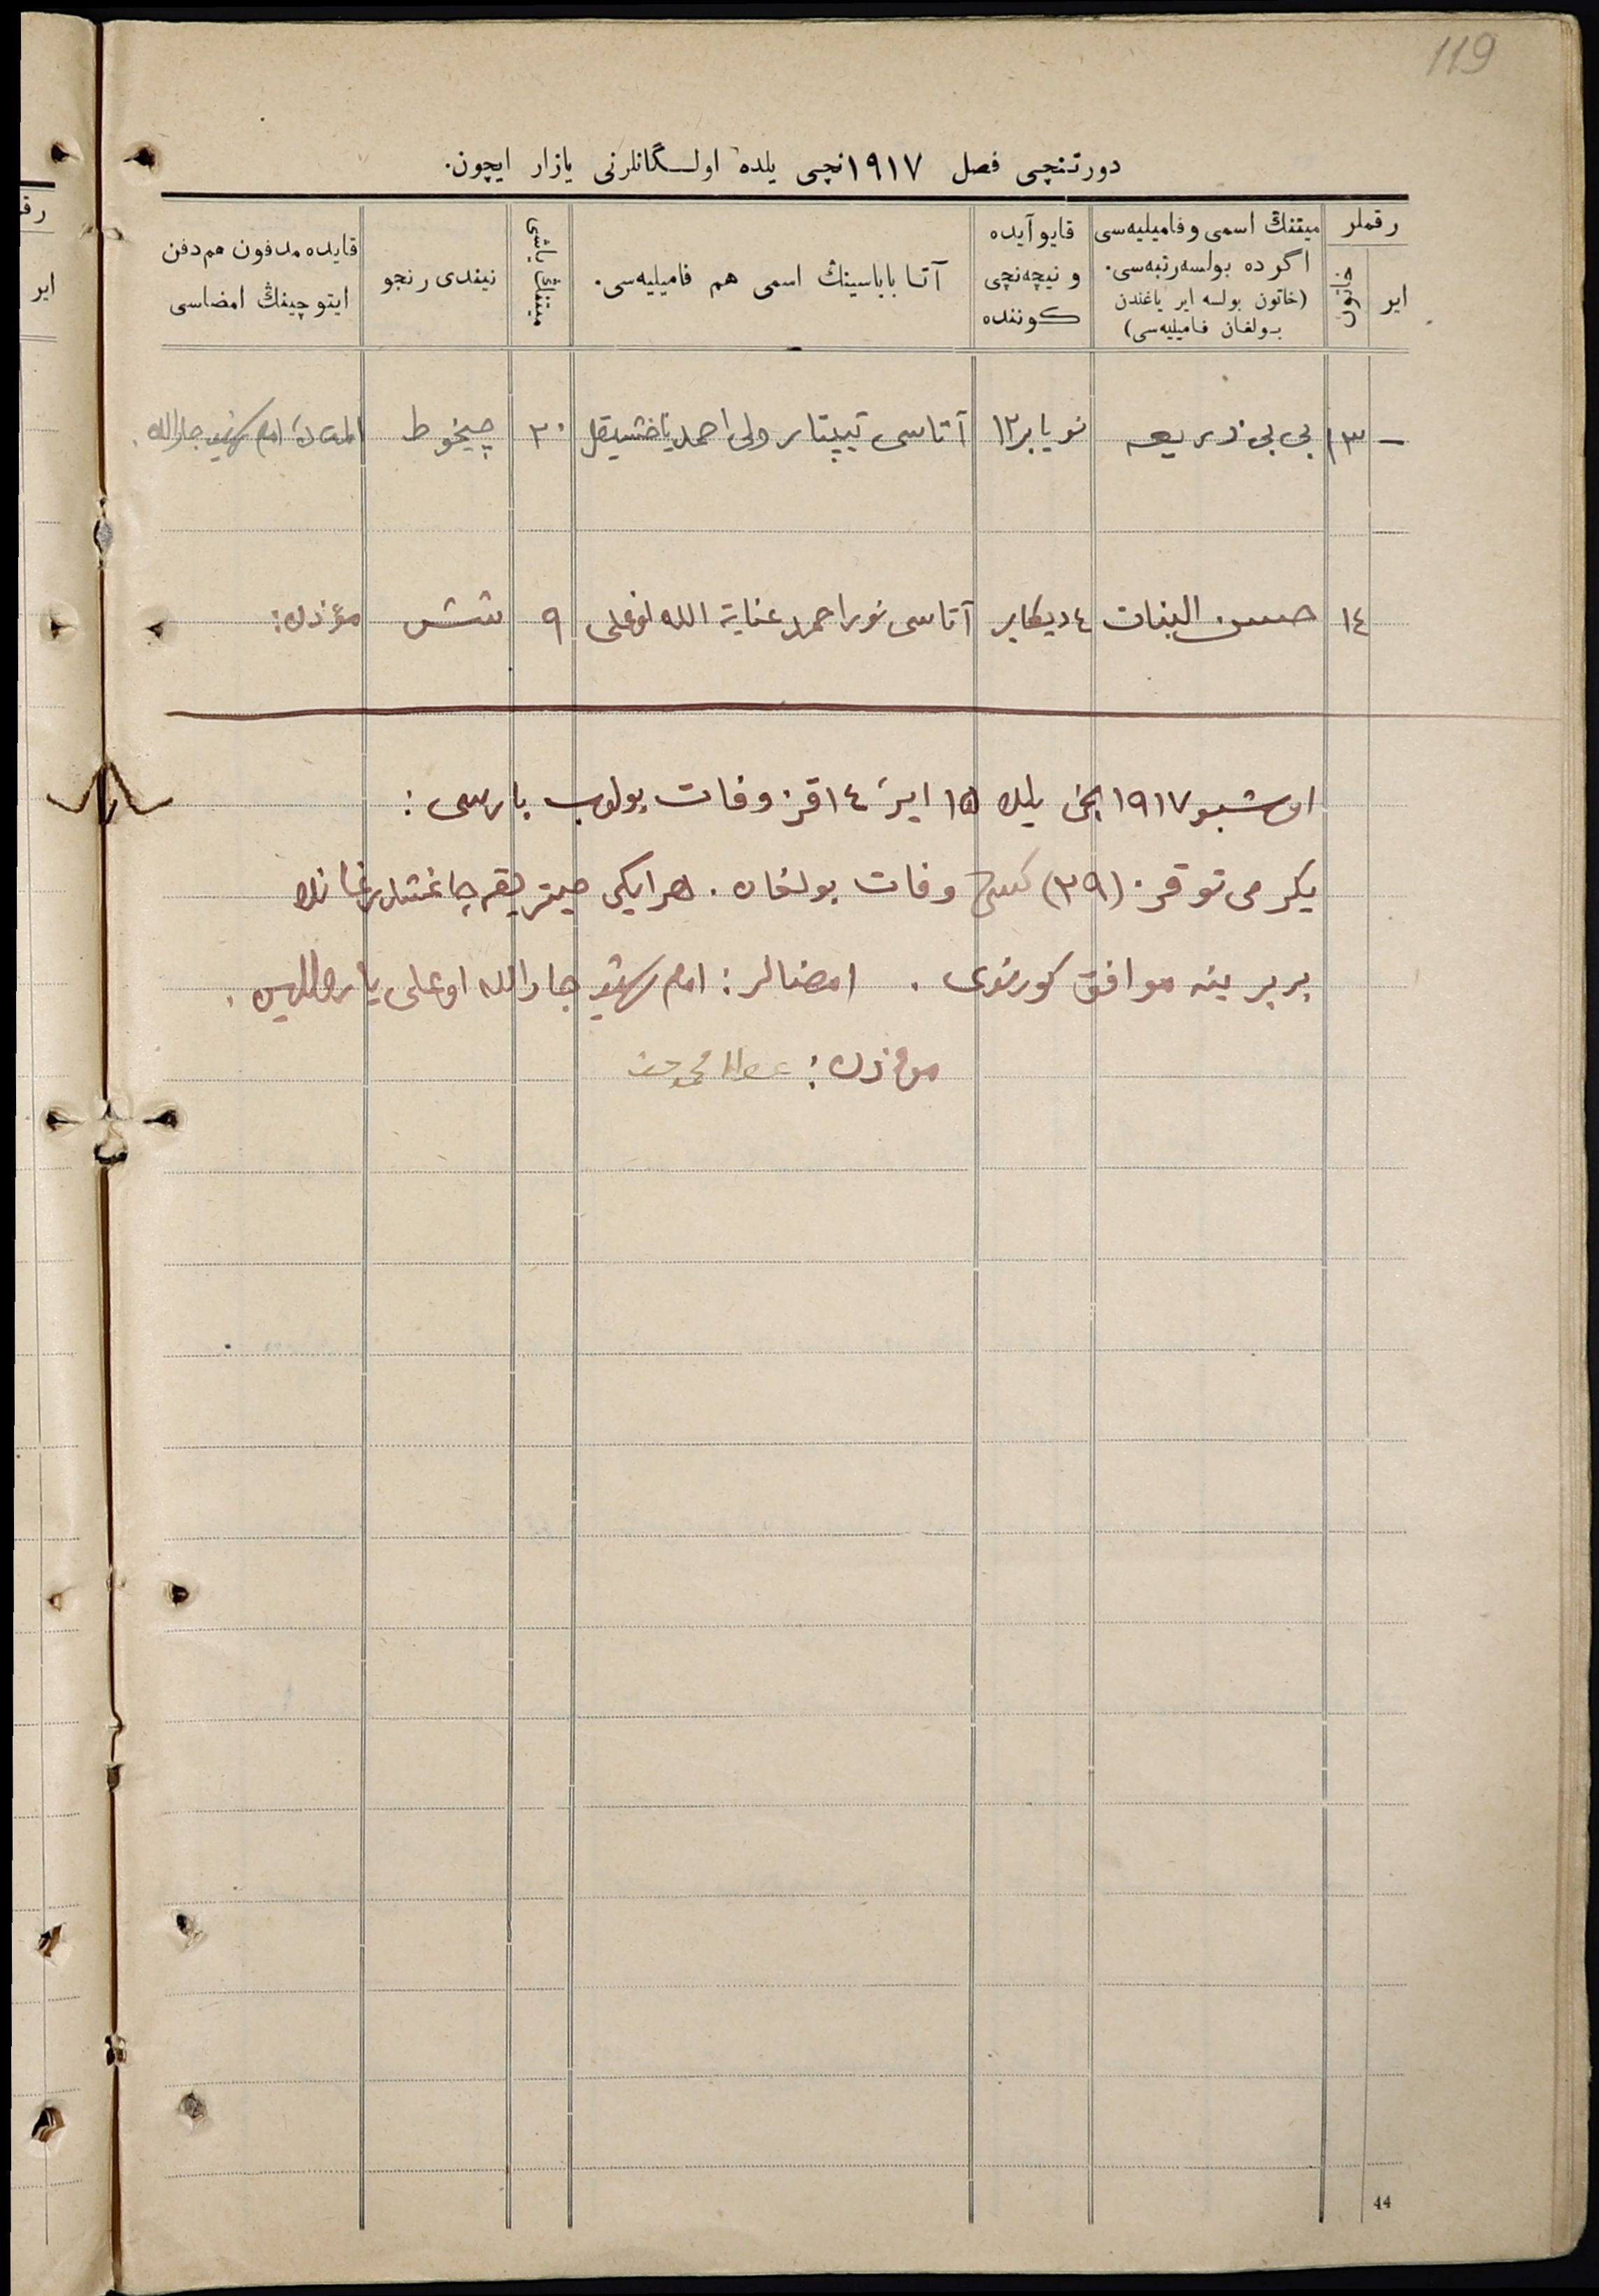 119
دورتنچی فصل ١٩١٧نچی یلده اولــگانلرنی یازار ایچون.
رقملر
ایر
خاتون
میتنڭ اسمی وفامیلیه‌سی
اگرده بولسه‌رتبه‌سی.
(خاتون بولسه ایر یاغندن
بولغان فامیلیه‌سی)
قایو آیده
و نیچه‌نچی
كوننده
آتا باباسینڭ اسمی هم فامیلیه‌سی.
میتنڭ یاشی
نیندی رنجو
قایده مدفون هم‌دفن
ایتوچینڭ امضاسی
– ١٣ بی بی ذریعه نویابر ١٢ آتاسی تیپتار ولی احمد ٢٠ چیخوط امام جارالله
١٤ حسن البنات ٤ دیکابر آتاسی نوراحمد عنایة الله اوغلی ٩ شش مؤذن:
اوشبو ١٩١٧ نچی یلده ١٥ ایر، ١٤ قز وفات بولوب بارسی:
یکرمی توقز (٢٩) کشی وفات بولغان. هر ایکی
بر برینه موافق کورندی. امضالر: امام جارالله اوغلی
مؤذن:
رق
ایر
44